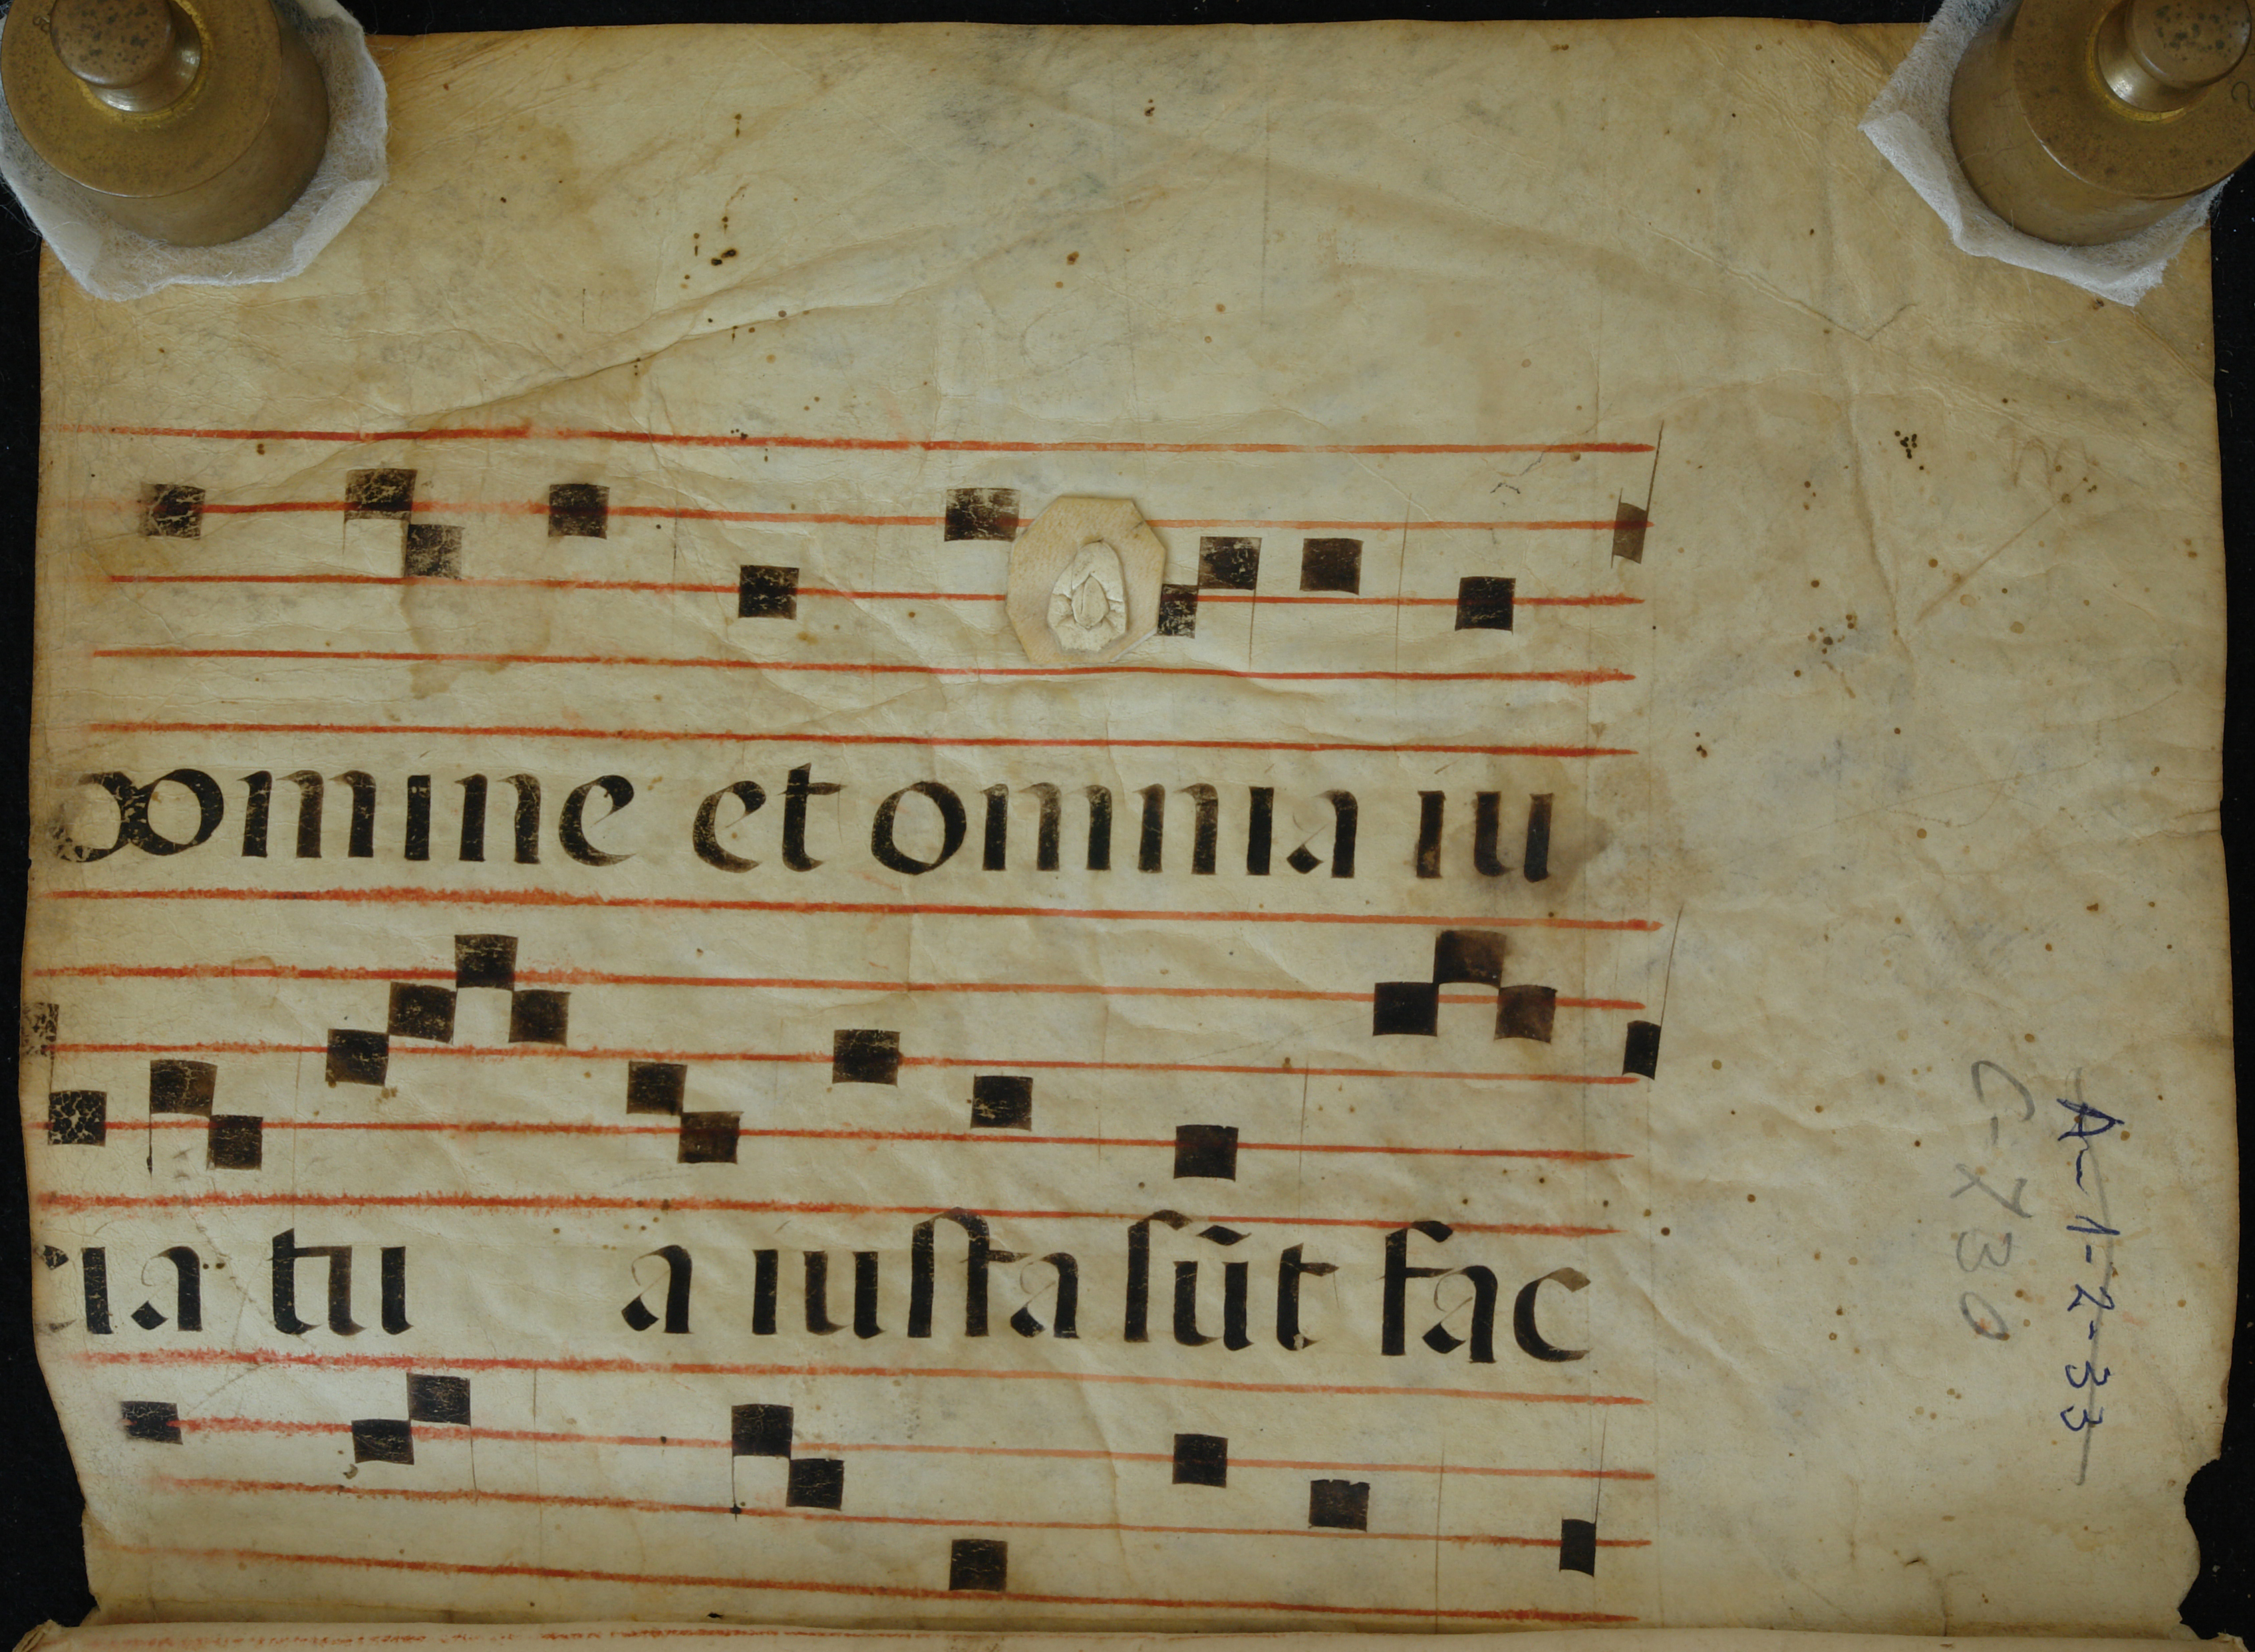 domine et omnia iu
cia tu a iusta sūt fac
A-1-2-33
C-730